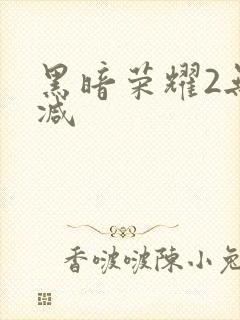 黑暗荣耀2
减
香啵啵陈小兔